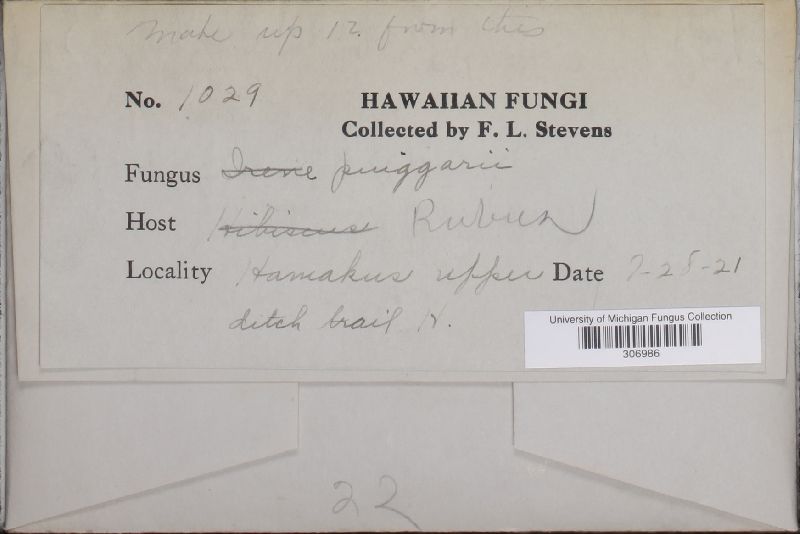 Make up 12. from this
No. 1029
HAWAIIAN FUNGI
Collected by F. L. Stevens
Fungus Irene puiggarii
Host Hibiscus Rubus
Locality Hamakus upper Date 7-28-21
ditch trail H.
University of Michigan Fungus Collection
306986
22